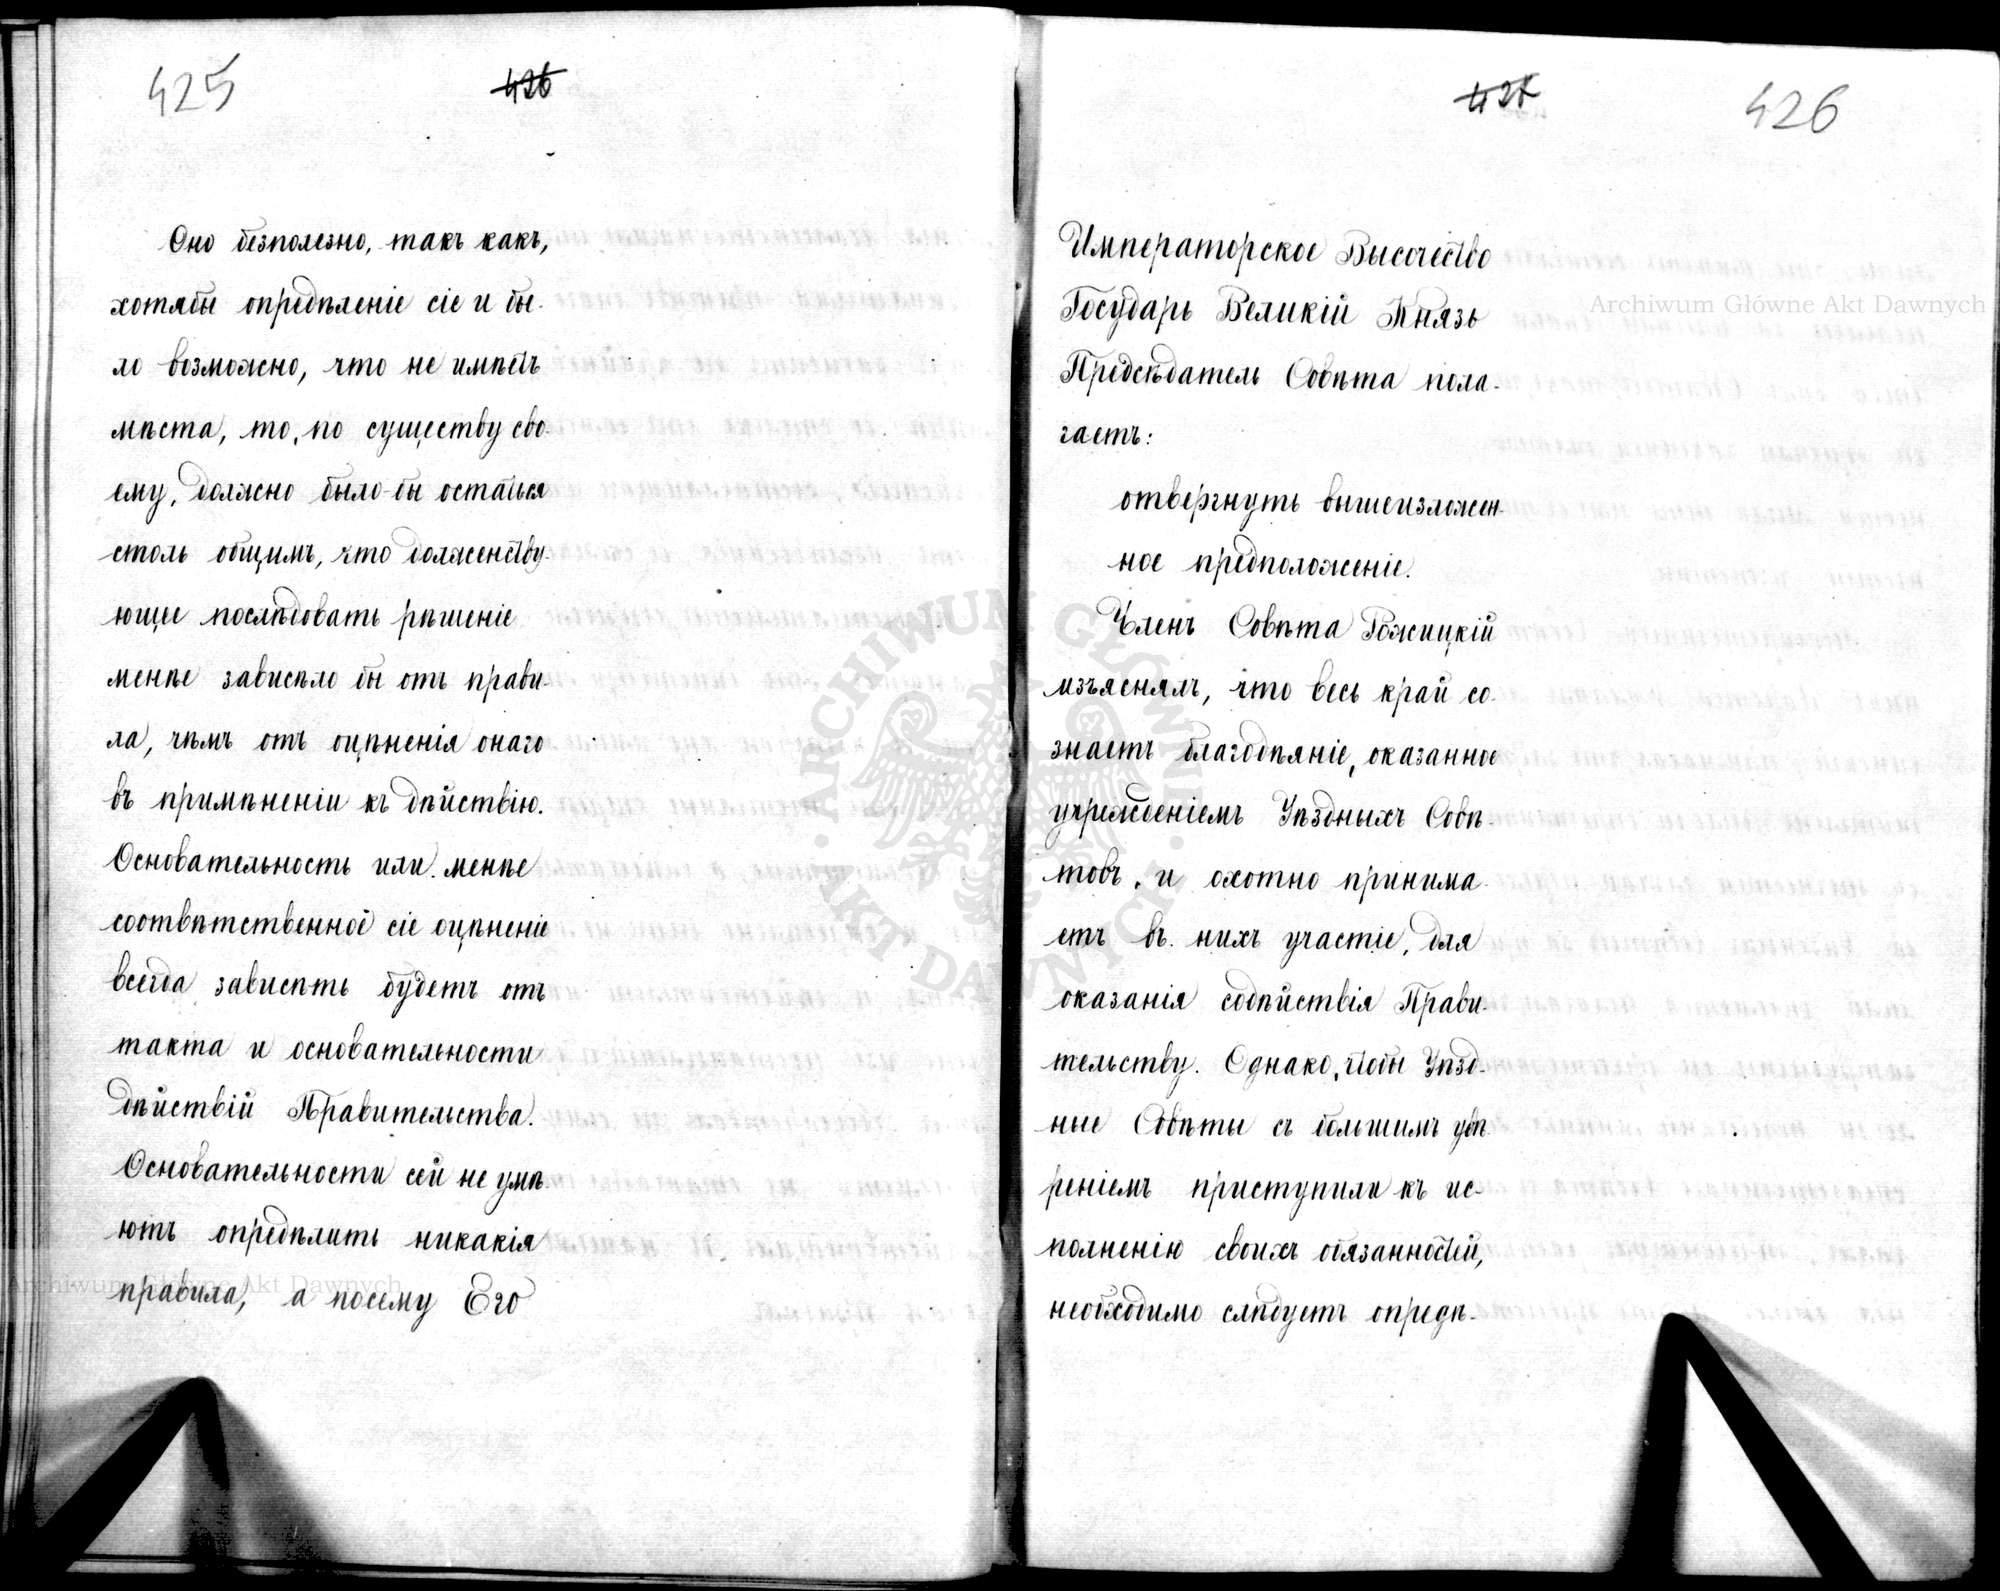 425
426
Оно безполезно, такъ какъ,
хотябы опредѣленіе сіе и бы-
ло возможно, что не имѣетъ
мѣста, то, по существу сво-
ему, должно было-бы остаться
столь общимъ, что долженству-
ющее послѣдовать рѣшеніе
менѣе зависѣло бы отъ прави-
ла, чѣмъ отъ оцѣненія онаго
въ примѣненіи къ дѣйствію.
Основательность или менѣе
соотвѣтственное сіе оцѣненіе
всегда зависѣть будетъ отъ
такта и основательности
дѣйствій Правительства.
Основательности сей не умѣ-
ютъ опредѣлить никакія
правила, а посему Его
426
Императорское Высочество
Государь Великій Князь
Предсѣдатель Совѣта пола-
гаетъ:
отвергнуть вышеизложен-
ное предположеніе.
Членъ Совѣта Гожицкій
изъяснялъ, что весь край со-
знаетъ благодѣяніе, оказанное
учрежденіемъ Уѣздныхъ Совѣ-
товъ, и охотно принима-
етъ въ нихъ участіе, для
оказанія содѣйствія Прави-
тельству. Однако, чтобы Уѣзд-
ные Совѣты съ большимъ увѣ-
реніемъ приступили къ ис-
полненію своихъ обязанностей,
необходимо слѣдуетъ опредѣ-
Archiwum Główne Akt Dawnych
Archiwum Główne Akt Dawnych
ARCHIWUM GŁÓWNE · AKT DAWNYCH ·